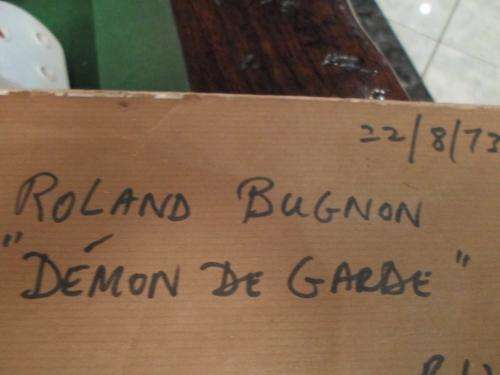 22/8/73
ROLAND BUGNON
"DÉMON DE GARDE"